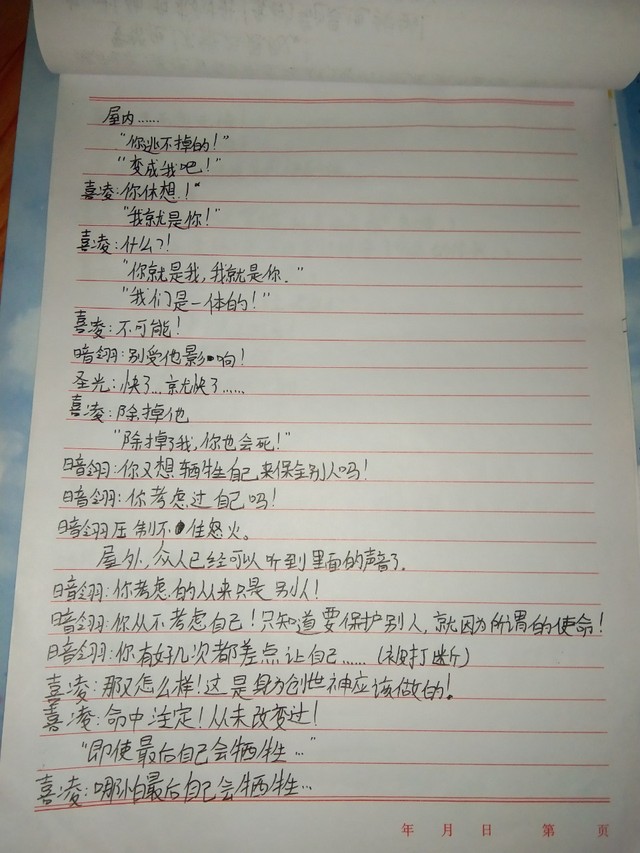 屋内……
“你逃不掉的！”
“变成我吧！”
喜凌：你休想！“
“我就是你！”
喜凌：什么？！
“你就是我，我就是你．”
“我们是一体的！”
喜凌：不可能！
暗翎：别受他影响！
圣光：快了…就快了……
喜凌：除掉他
“除掉了我，你也会死！”
暗翎：你又想牺牲自己来保全别人吗！
暗翎：你考虑过自己吗！
暗翎压制不住怒火。
屋外，众人已经可以听到里面的声音了．
暗翎：你考虑的从来只是别人！
暗翎：你从不考虑自己！只知道要保护别人，就因为所谓的使命！
暗翎：你有好几次都差点让自己……（被打断）
喜凌：那又怎么样！这是身为创世神应该做的！
喜凌：命中注定！从未改变过！
“即使最后自己会牺牲…”
喜凌：哪怕最后自己会牺牲…
年 月 日 第 页